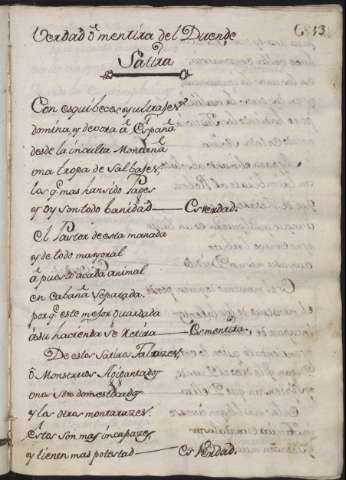 13
Verdad ò mentira del Duende
Satira
Con esquibeces y ultrages
domina, y devora â España
desde la inculta Montaña
una tropa de Salbages,
los q.e mas han sido Pages
y oy son todo banidad — Es verdad.
el Pastor de esta manada
y de todo mayoral
â puesto a cada animal
en cabaña separada.
porq.e este mejor guardada
â su hacienda se retira — Es mentira.
De estos Satiros
ô Monstruos
unos son domesticados
y los otros montarazes.
estos son mas incapazes,
y tienen mas potestad — es Verdad.